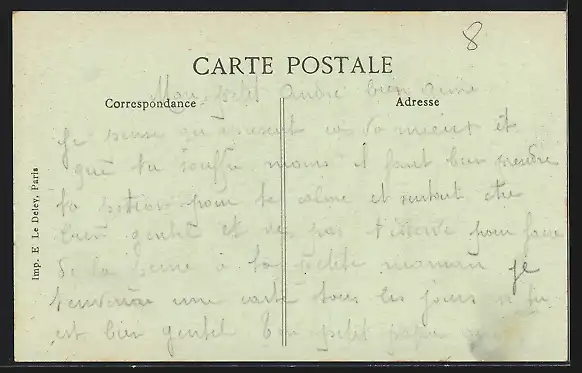 8
CARTE POSTALE
Mon petit André bien aimé
Correspondance
Adresse
Je pense qu'à présent va mieux et
que tu souffre moins il faut bien prendre
ta potion pour te calmer et surtout être
bien gentil et pas pour faire
de la peine à ta petite maman je
une carte tous les jours si tu
est bien gentil Ton petit papa
Imp. E. Le Deley, Paris